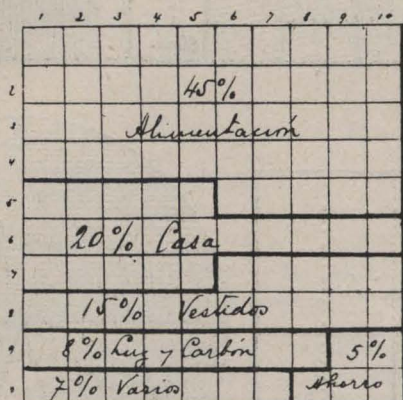 1 2 3 4 5 6 7 8 9 10
2 45%
3 Alimentación
4
5
6 20% Casa
7
8 15% Vestidos
9 8% Luz y Carbón 5%
7% Varios Ahorro